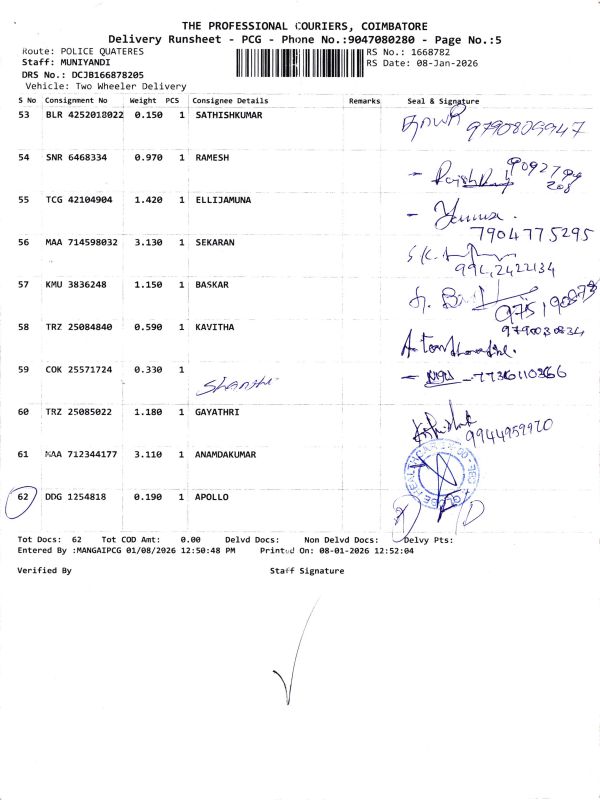 THE PROFESSIONAL COURIERS, COIMBATORE
Delivery Runsheet - PCG - Phone No.:9047080280 - Page No.:5
Route: POLICE QUATERES
RS No.: 1668782
Staff: MUNIYANDI
RS Date: 08-Jan-2026
DRS No.: DCJB166878205
Vehicle: Two Wheeler Delivery
S No Consignment No Weight PCS Consignee Details Remarks Seal & Signature
53 BLR 4252018022 0.150 1 SATHISHKUMAR
54 SNR 6468334 0.970 1 RAMESH
9092794
208
55 TCG 42104904 1.420 1 ELLIJAMUNA
7904775295
56 MAA 714598032 3.130 1 SEKARAN
57 KMU 3836248 1.150 1 BASKAR
58 TRZ 25084840 0.590 1 KAVITHA
9790030834
59 COK 25571724 0.330 1
Shanthi
7736110366
60 TRZ 25085022 1.180 1 GAYATHRI
9944959920
61 MAA 712344177 3.110 1 ANAMDAKUMAR
62 DDG 1254818 0.190 1 APOLLO
Tot Docs: 62 Tot COD Amt: 0.00 Delvd Docs: Non Delvd Docs: Delvy Pts:
Entered By :MANGAIPCG 01/08/2026 12:50:48 PM Printed On: 08-01-2026 12:52:04
Verified By Staff Signature